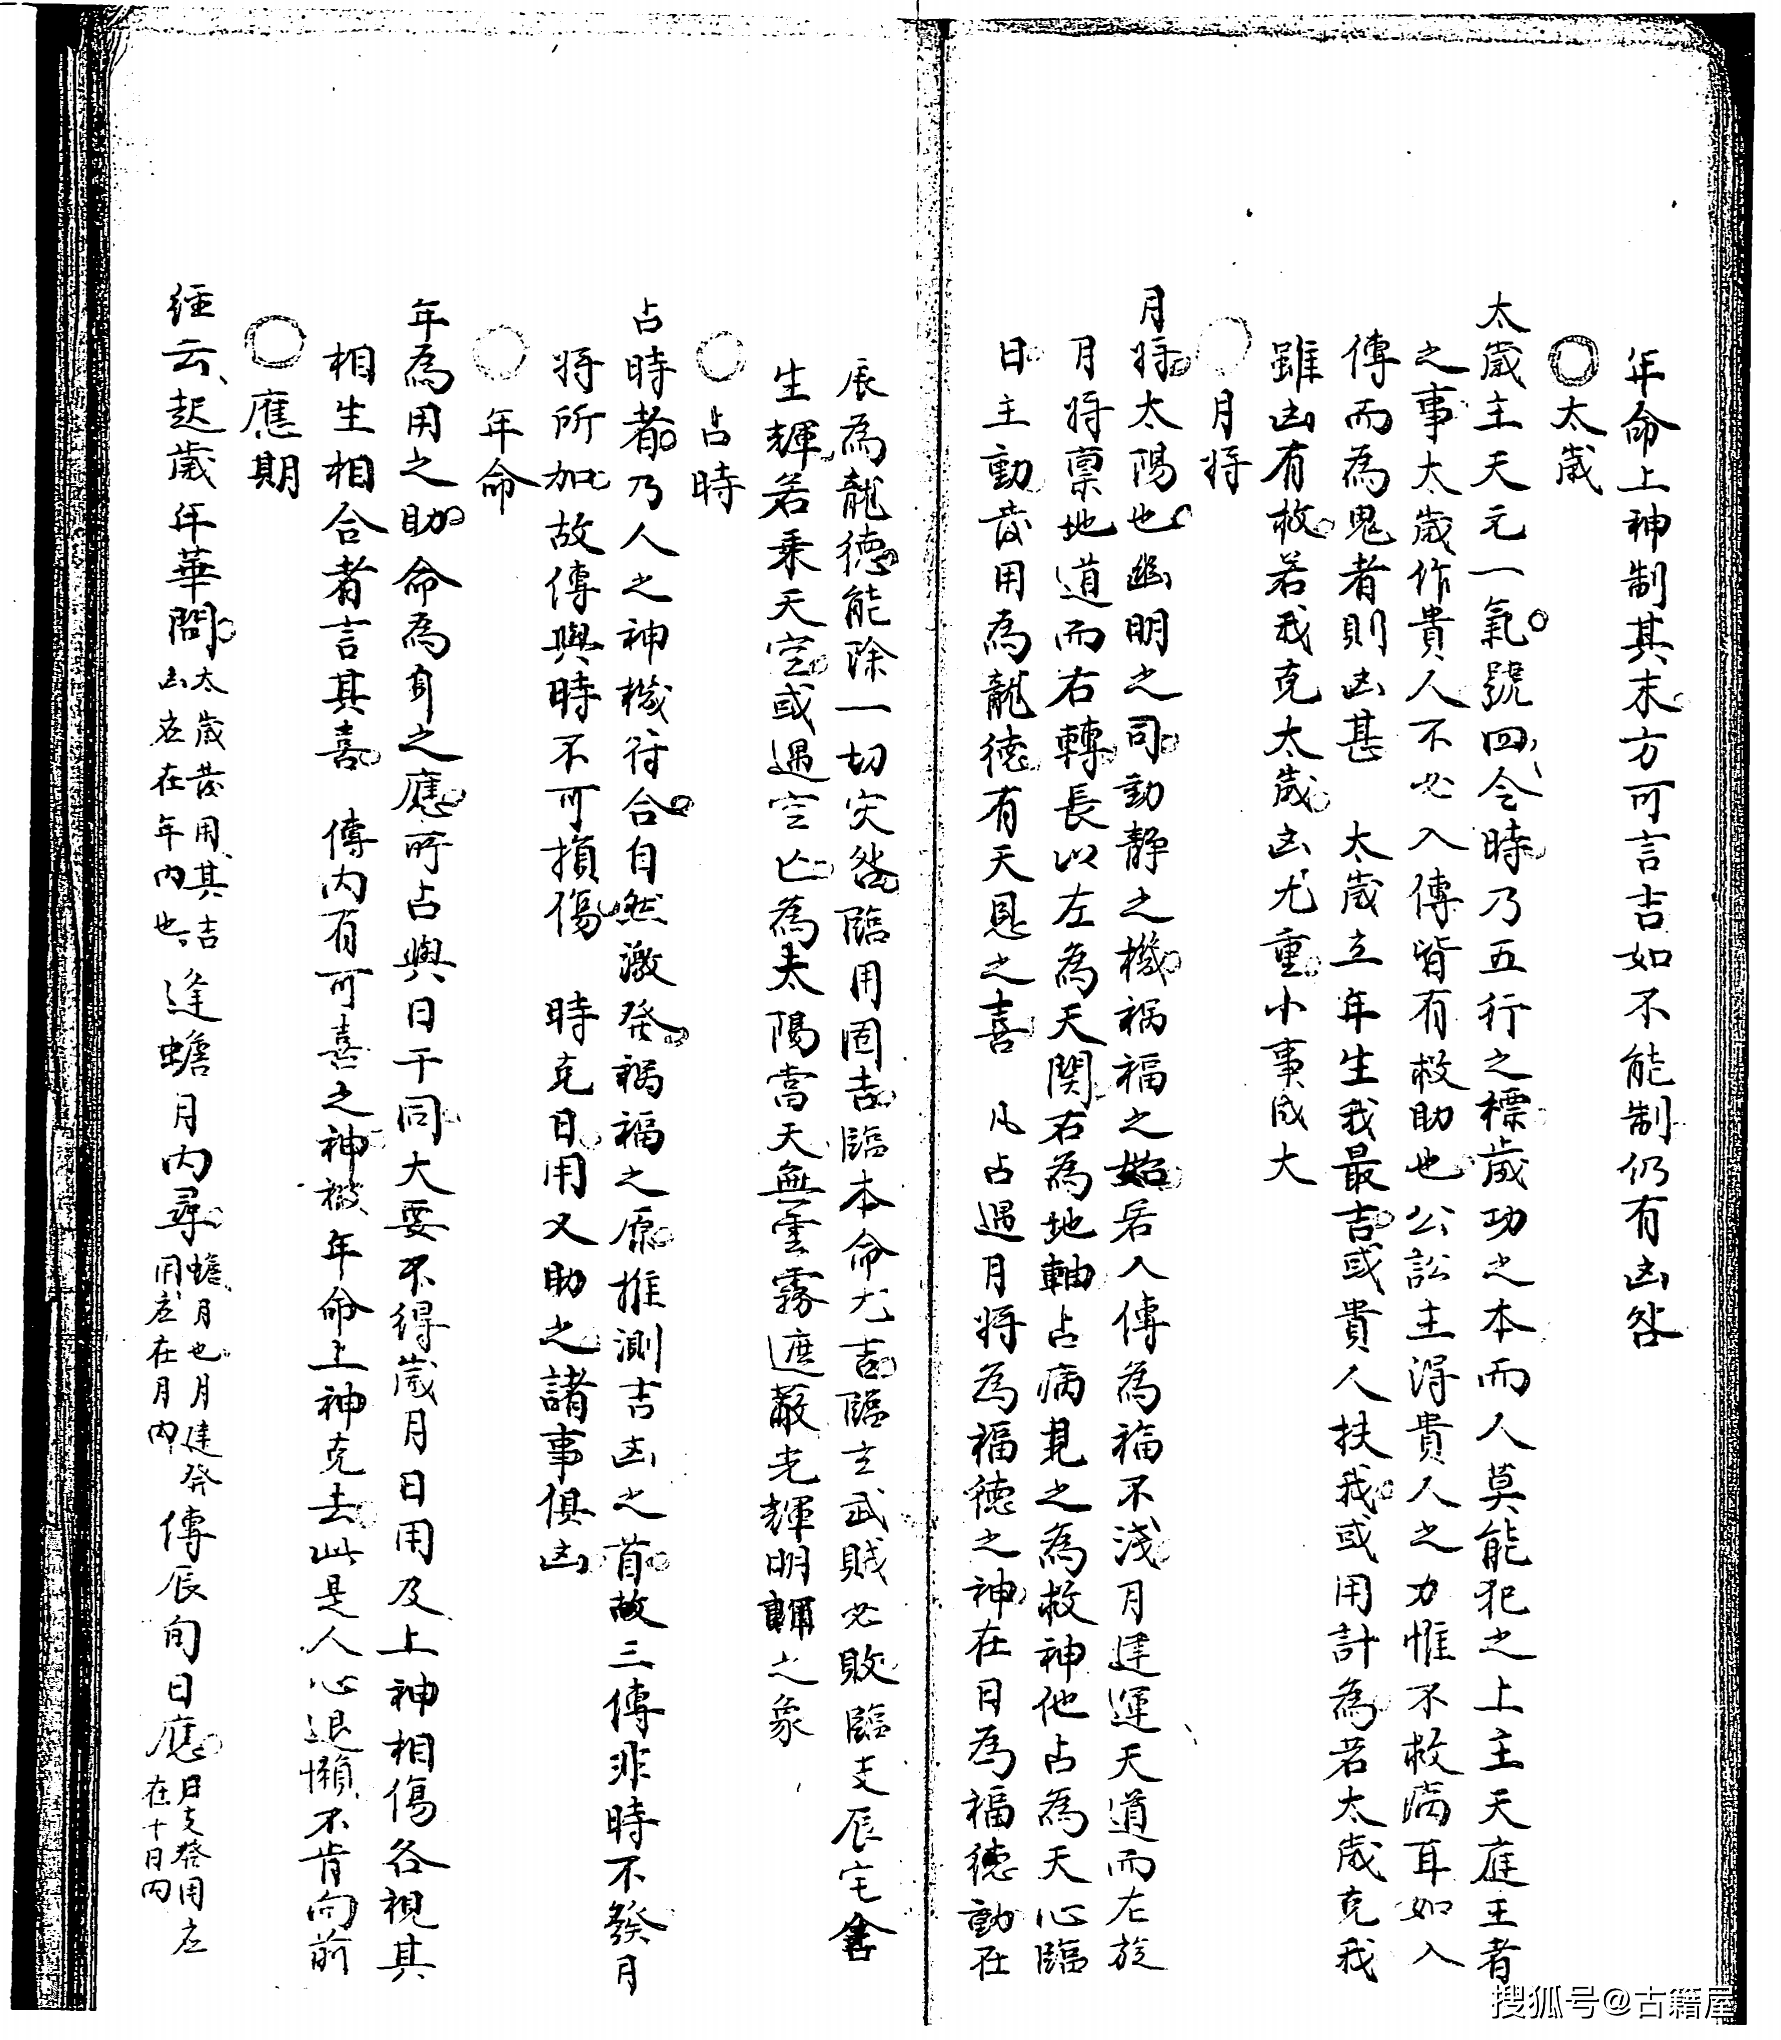 年命上神制其末方可言吉如不能制仍有凶咎
〇太歲
太歲主天元一氣號四令時乃五行之標歲功之本而人莫能犯之上主天庭王者
之事太歲作貴人不必入傳皆有救助也公訟主得貴人之力惟不救病耳如入
傳而為鬼者則凶甚 太歲立年生我最吉或貴人扶我或用計為若太歲克我
雖凶有救若我克太歲凶尤重小事成大
〇月將
月將太陽也幽明之司動靜之機禍福之始若入傳為福不淺月建運天道而左旋
月將稟地道而右轉長以左為天関右為地軸占病見之為救神他占為天心臨
日主動發用為龍德有天恩之喜 凡占遇月將為福德之神在日為福德動在
辰為龍德能除一切灾咎臨用固吉臨本命尤吉臨玄武賊必敗臨支辰宅舍
生輝若乘天空或遇空亡為太陽當天無雲霧遮蔽光輝明之象
〇占時
占時者乃人之神機符合自然激發禍福之原推測吉凶之首故三傳非時不發月
將所加故傳與時不可損傷 時克日用又助之諸事俱凶
〇年命
年為用之助命為身之應所占與日干同大要不得歲月日用及上神相傷各視其
相生相合者言其喜 傳内有可喜之神被年命上神克去此是人心退懶不肯向前
〇應期
経云起歲年華問太歲發用其吉凶应在年内也逢蟾月内尋蟾月也月建發用应在月内傳辰旬日應日支發用应在十日内
搜狐号@古籍屋